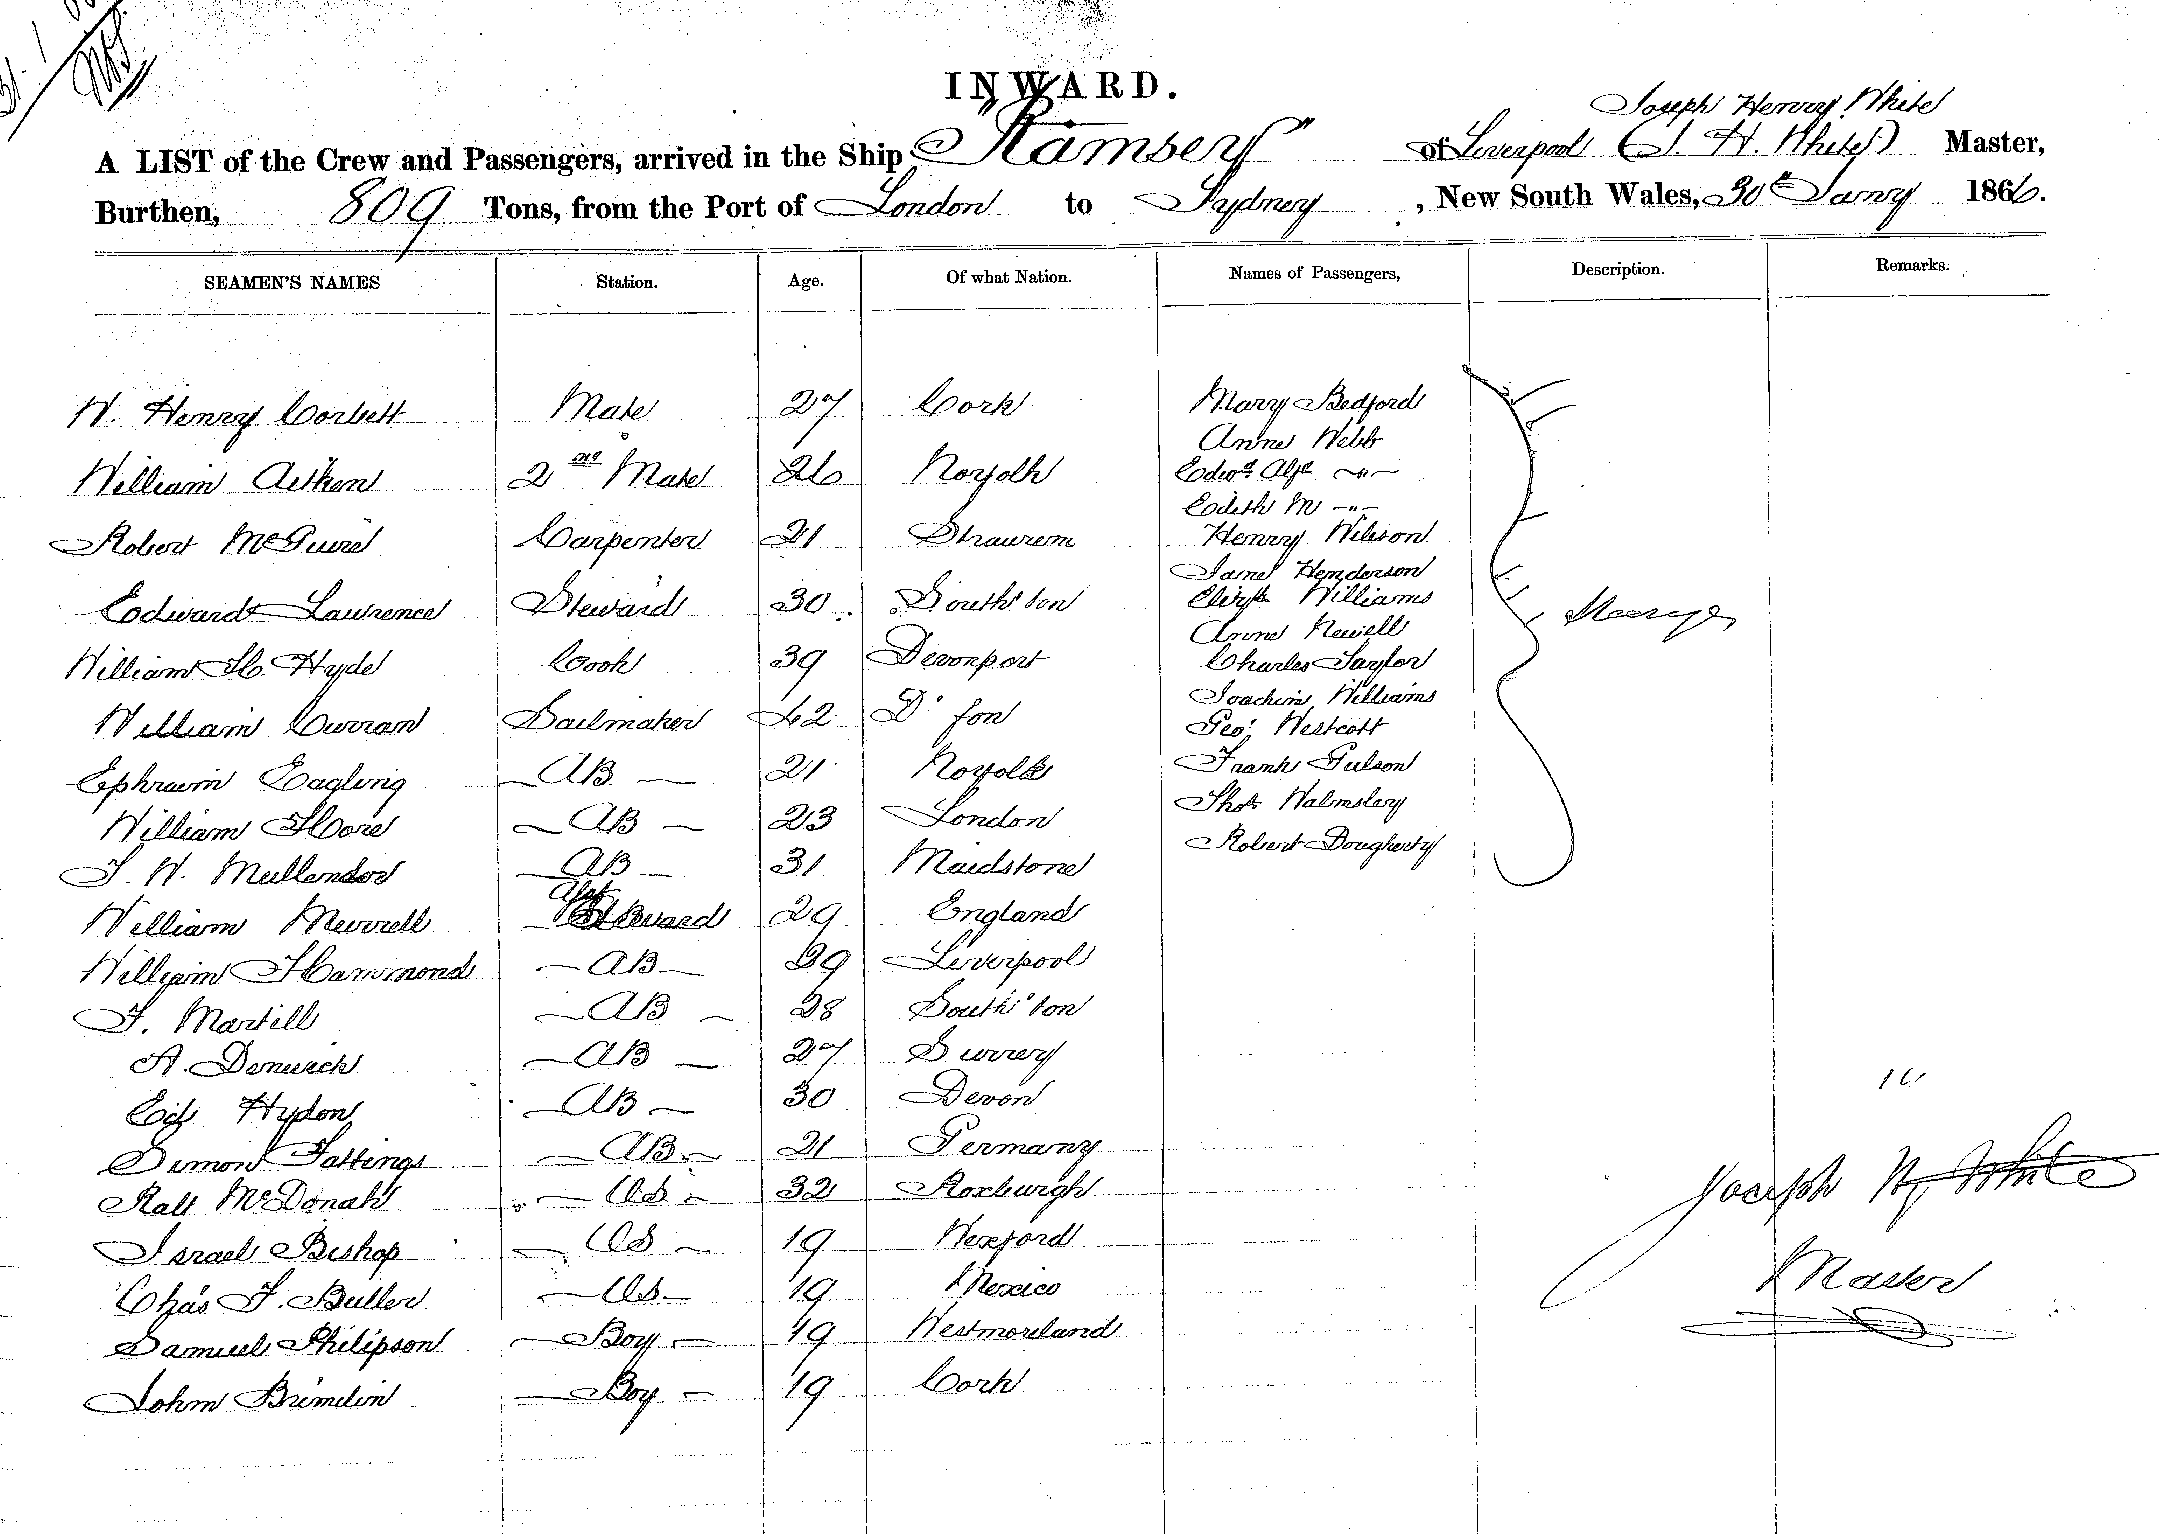 INWARD.
Joseph Henry White
A LIST of the Crew and Passengers, arrived in the Ship "Ramsey" of Liverpool (J. H. White) Master,
Burthen, 809 Tons, from the Port of London to Sydney, New South Wales, 30th Jany 1866.
SEAMEN'S NAMES Station. Age. Of what Nation. Names of Passengers, Description. Remarks.
W. Henry Corbett Mate 27 Cork Mary Bedford
Anne Webb
William Aitken 2nd Mate 26 Norfolk Edwd Alfd -"-
Edith M -"-
Robert McGuire Carpenter 21 Henry Wilson
Jane Henderson
Edward Lawrence Steward 30 South'ton Elizth Williams
Anne Newell
William H. Hyde Cook 39 Devonport Charles Taylor
Joachim Williams
William Curran Sailmaker 42 Geo. Westcott
Ephraim Eagling AB 21 Norfolk Frank Gulson
William Hore AB 23 London Thos Walmsley
J. W. Mullender AB 31 Maidstone Robert Dougherty
William Merrell Steward 29 England
William Hammond AB 39 Liverpool
J. Martill AB 28 South'ton
A. AB 27 Surrey
Hydon AB 30 Devon
Simon Fastings AB 21 Germany
Ralf McDonald OS 32 Roxburgh
Israel Bishop OS 19 Wexford
Chas F. Buller OS 19 Mexico
Samuel Philipson Boy 19 Westmoreland
John Brimilin Boy 19 Cork
Joseph H. White
Master